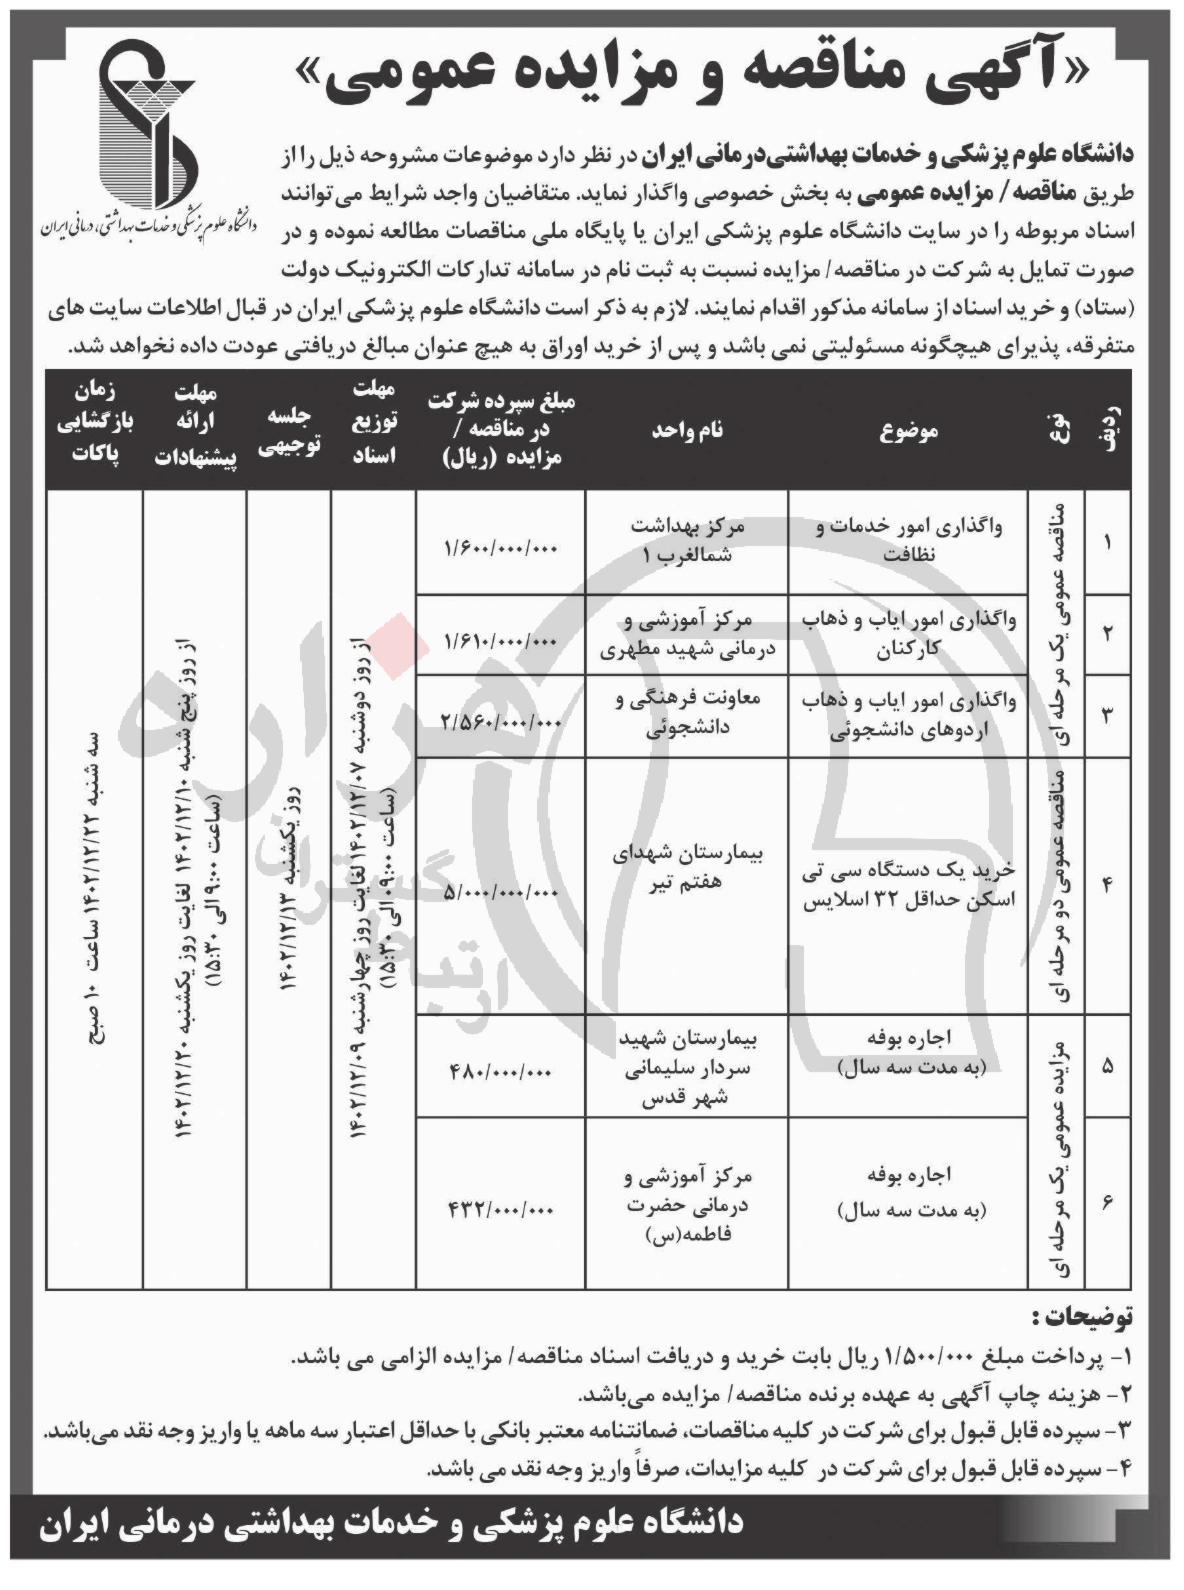 «آگهی مناقصه و مزایده عمومی»
دانشگاه علوم پزشکی و خدمات بهداشتی، درمانی ایران
دانشگاه علوم پزشکی و خدمات بهداشتی‌درمانی ایران در نظر دارد موضوعات مشروحه ذیل را از
طریق مناقصه/ مزایده عمومی به بخش خصوصی واگذار نماید. متقاضیان واجد شرایط می‌توانند
اسناد مربوطه را در سایت دانشگاه علوم پزشکی ایران یا پایگاه ملی مناقصات مطالعه نموده و در
صورت تمایل به شرکت در مناقصه/ مزایده نسبت به ثبت نام در سامانه تدارکات الکترونیک دولت
(ستاد) و خرید اسناد از سامانه مذکور اقدام نمایند. لازم به ذکر است دانشگاه علوم پزشکی ایران در قبال اطلاعات سایت های
متفرقه، پذیرای هیچگونه مسئولیتی نمی باشد و پس از خرید اوراق به هیچ عنوان مبالغ دریافتی عودت داده نخواهد شد.
ردیف
نوع
موضوع
نام واحد
مبلغ سپرده شرکت
در مناقصه /
مزایده (ریال)
مهلت
توزیع
اسناد
جلسه
توجیهی
مهلت
ارائه
پیشنهادات
زمان
بازگشایی
پاکات
۱
مناقصه عمومی یک مرحله ای
واگذاری امور خدمات و
نظافت
مرکز بهداشت
شمالغرب ۱
۱/۶۰۰/۰۰۰/۰۰۰
از روز دوشنبه ۱۴۰۲/۱۲/۰۷ لغایت روز چهارشنبه ۱۴۰۲/۱۲/۰۹
(ساعت ۰۹:۰۰ الی ۱۵:۳۰)
روز یکشنبه ۱۴۰۲/۱۲/۱۳
از روز پنج شنبه ۱۴۰۲/۱۲/۱۰ لغایت روز یکشنبه ۱۴۰۲/۱۲/۲۰
(ساعت ۹:۰۰ الی ۱۵:۳۰)
سه شنبه ۱۴۰۲/۱۲/۲۲ ساعت ۱۰ صبح
۲
واگذاری امور ایاب و ذهاب
کارکنان
مرکز آموزشی و
درمانی شهید مطهری
۱/۶۱۰/۰۰۰/۰۰۰
۳
واگذاری امور ایاب و ذهاب
اردوهای دانشجوئی
معاونت فرهنگی و
دانشجوئی
۲/۵۶۰/۰۰۰/۰۰۰
۴
مناقصه عمومی دو مرحله ای
خرید یک دستگاه سی تی
اسکن حداقل ۳۲ اسلایس
بیمارستان شهدای
هفتم تیر
۵/۰۰۰/۰۰۰/۰۰۰
۵
مزایده عمومی یک مرحله ای
اجاره بوفه
(به مدت سه سال)
بیمارستان شهید
سردار سلیمانی
شهر قدس
۴۸۰/۰۰۰/۰۰۰
۶
اجاره بوفه
(به مدت سه سال)
مرکز آموزشی و
درمانی حضرت
فاطمه(س)
۴۳۲/۰۰۰/۰۰۰
هزاره
گستران
ارتباط
توضیحات :
۱- پرداخت مبلغ ۱/۵۰۰/۰۰۰ ریال بابت خرید و دریافت اسناد مناقصه/ مزایده الزامی می باشد.
۲- هزینه چاپ آگهی به عهده برنده مناقصه/ مزایده می‌باشد.
۳- سپرده قابل قبول برای شرکت در کلیه مناقصات، ضمانتنامه معتبر بانکی با حداقل اعتبار سه ماهه یا واریز وجه نقد می‌باشد.
۴- سپرده قابل قبول برای شرکت در کلیه مزایدات، صرفاً واریز وجه نقد می باشد.
دانشگاه علوم پزشکی و خدمات بهداشتی درمانی ایران